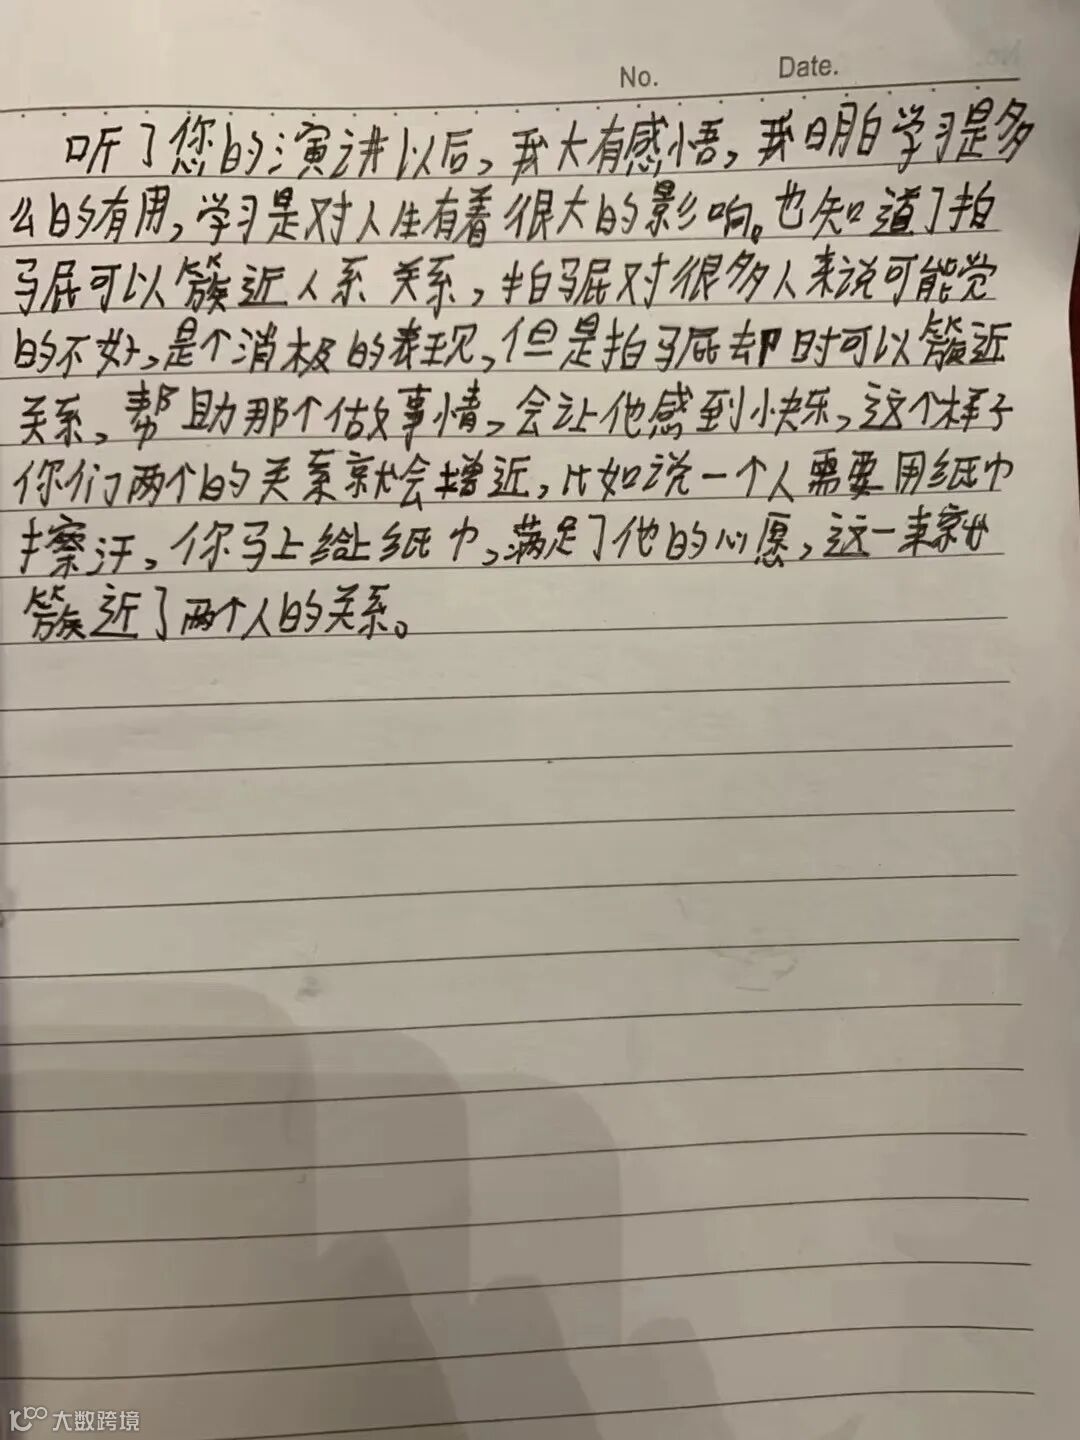 No. Date.
听了您的演讲以后，我大有感悟，我明白学习是多
么的有用，学习是对人生有着很大的影响。也知道了拍
马屁可以簇近人系关系，拍马屁对很多人来说可能觉
的不好，是个消极的表现，但是拍马屁却时可以簇近
关系，帮助那个做事情，会让他感到快乐，这个样子
你们两个的关系就会增近，比如说一个人需要用纸巾
擦汗，你马上给上纸巾，满足了他的心愿，这一来就
簇近了两个人的关系。
大数跨境